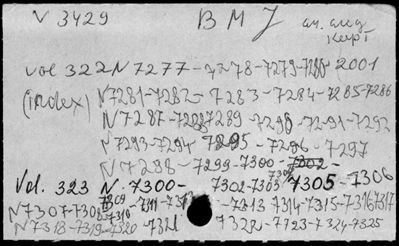 V 3429 BMJ
vol 322 N 7277-7278-7279-7280-2001
(index) N7281-7282-7283-7284-7285-7286
N7287-72887289-7290-7291-7292
N7293-7294 7295-7296-7297
N7298-7299-7300-7302-
Vol. 323 N. 7300- 7302-7303 7305-7306
N7307-7308 7309-7310 7311-7313 7314-7315-73167317
N7318-7319-7320 7321 7322-7323-7324-7325